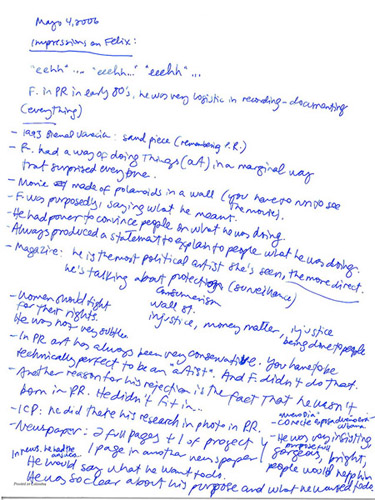 Mayo 4, 2006
Impressions on Felix:
"eehh" ... "eeehh..." "eeehh" ...
F. in PR in early 80's, he was very logistic in recording - documenting
(everything)
- 1993 Bienal Venecia: sand piece (remembering P.R.)
- F. had a way of doing things (art) in a marginal way
that surprised everyone.
- Movie made of polaroids in a wall (you have to run to see
the movie).
- F was purposely, saying what he meant.
- He had power to convince people on what he was doing.
- Always produced a statement to explain to people what he was doing.
- Magazine: he is the most political artist she's seen, the more direct.
he's talking about protections (surveilance)
consumerism
- Women should fight
wall st.
for their rights.
injustice, money matter, injustice
being done to people
He was not very subtle
- In PR art has always been very conservative. You have to be
technically perfect to be an "artist". And F. didn't do that.
- Another reason for his rejection is the fact that he wasn't
born in PR. He didn't fit in...
- ICP: he did there his research in photo in PR.
- concrete
- Newspaper: 2 full pages + 1 of project
- He was very insisting
1 page in another newspaper
gorgeous, bright,
In news. he had to
people would help him
He would say what he want to do.
He was so clear about his purpose and what he wanted to do.